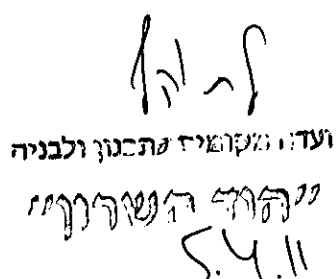 ועדה מקומית לתכנון ולבניה
"הוד השרון"
5.4.11